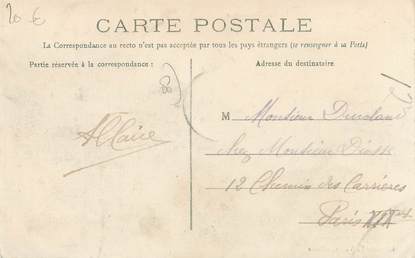 20 €
CARTE POSTALE
La Correspondance au recto n'est pas acceptée par tous les pays étrangers (se renseigner à la Poste)
Partie réservée à la correspondance :
Adresse du destinataire
M Monsieur
chez Monsieur
12 Chemin des Carrières
Paris